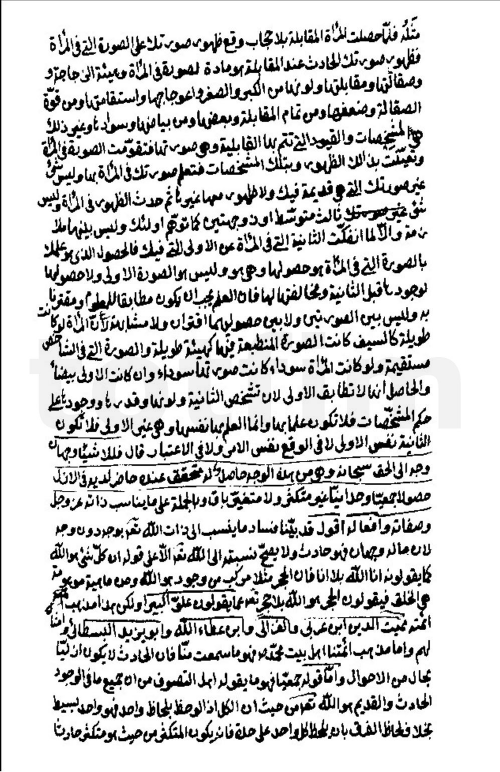 مثله فلمّا حصلت المرأة المقابلة بلا حجاب وقع ظهور صورتك على الصورة التي في المرأة
فظهور صورتك الحادث عند المقابلة هو مادة لصورة في المرأة وهيئة الى حاجة و
صقالتها ومقابلتها ولونها من الكبر والصغر واعوجاجها واستقامتها ومن قوّة
الصقالة وضعفها ومن تمام المقابلة وبعضها ومن بياضها وسوادها وغير ذلك
هي المشخصات والقيود التي تتم بها القابلية وهي صورتها فتقوّمت الصورة في المرأة
وتعيّنت بذلك الظهور وبتلك المشخصات فتعلم صورتك في المرأة بها وليس شئ
غير صورتك التي هي قديمة فيك ولا ظهور معها غيرها ثم حدث الظهور في المرأة وليس
شئ غير صورتك ثالث متوسط او ذو جهتين كما توهم اولئك وليس بينهما ملا
زمة والّا لما انفكّت الثانية التي في المرأة عن الاولى التي فيك فالحصول الذي هو علمك
بالصورة التي في المرأة هو حصولها وهي هو وليس هو الصورة الاولى ولا حصولها
لوجودها قبل الثانية ومخالفتها لها فان العلم يجب ان يكون مطابقا للمعلوم ومقترنا
به وليس بين الصورتين ولا بين حصولهما اقتران ولا مشابهة لأن المرأة لو كانت
طويلة كالسيف كانت الصورة المنطبعة فيها كهيئة طويلة والصورة التي في الشاخص
مستقيمة ولو كانت المرأة سوداء كانت صورتها سوداء وان كانت الاولى بيضاء
والحاصل انها لا تطابق الاولى لان تشخص الثانية ولونها وقدرها ووجودها على
حكم المشخصات فلا تكون علما بها وانما العلم بها نفسها وهي غير الاولى فلا تكون
الثانية نفس الاولى لا في الواقع نفس الامر ولا في الاعتبار قال فللاشياء وجهان
وجه الى الحق سبحانه وهي من هذه الوجه حاصلة له متحققة عنده حاضر لديه في الازل
حصولا جمعيّا وحدانيّا غير متكثر ولا متغير باق وبالجملة على ما يناسب ذاته عز وجل
وصفاته وافعاله اقول قد بيّنا فساد ما ينسب الى ذات الله تعالى بوجه دون وجه
لان ما له وجهان فهو حادث ولا يصح نسبته الى الله تعالى الّا على قوله ان كل شئ هو الله
كما يقولونه انا الله بلا انا فان الحجر مثلا مركب من وجود هو الله ومن ماهية موهومة
هي الخلق فيقولون الحجر هو الله بلا حجر تعالى عما يقولون علوّا كبيرا ولكن هذا مذهب
ائمته مميت الدين ابن عربي والغزالي وابن عطاء الله وابو يزيد البسطامي وامثا
لهم واما مذهب ائمتنا اهل بيت محمّد صم فهو ما سمعت منّا فان الحادث لا يكون ازليّا
بحال من الاحوال وامّا قوله جمعيّا فهو ما يقوله اهل التصوف من ان جميع ما في الوجود
الحادث والقديم هو الله تعالى من حيث ان الكل اذا لوحظ بلحاظ واحد فهو واحد بسيط
بخلاف لحاظ الفرق بان يلحظ كل واحد على حدة فانه يكون المتكثر من حيث هو متكثر حادثا